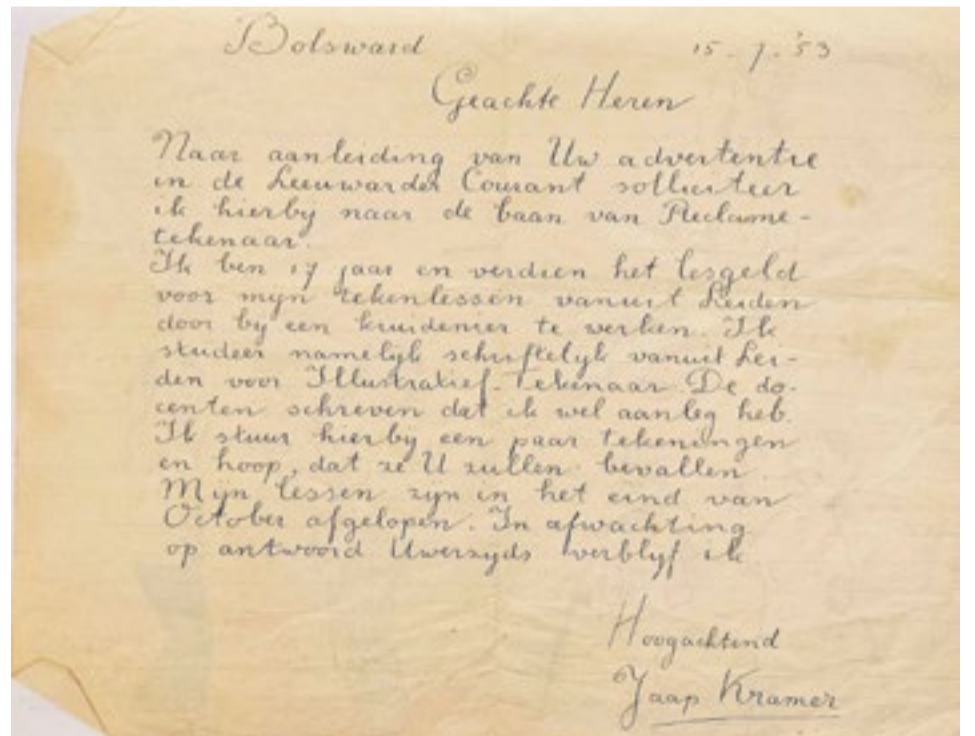 Bolsward 15-7-'53
Geachte Heren
Naar aanleiding van Uw advertentie
in de Leeuwarder Courant solliciteer
ik hierby naar de baan van Reclame-
tekenaar.
Ik ben 17 jaar en verdien het lesgeld
voor myn tekenlessen vanuit Leiden
door by een kruidenier te werken. Ik
studeer namelyk schriftelyk vanuit Lei-
den voor Illustratief-Tekenaar. De do-
centen schreven dat ik wel aanleg heb.
Ik stuur hierby een paar tekeningen
en hoop, dat ze U zullen bevallen.
Myn lessen zyn in het eind van
October afgelopen. In afwachting
op antwoord Uwerzyds verblyf ik
Hoogachtend
Jaap Kramer